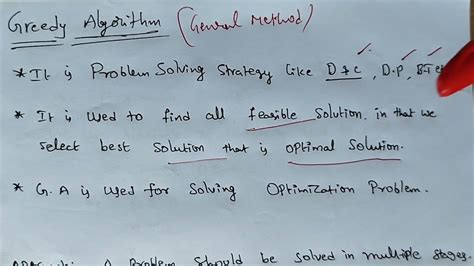 Greedy Algorithm (General Method)
* It is Problem Solving Strategy like D & C, D.P, B.T etc
* It is used to find all feasible Solution. in that we
select best Solution that is optimal Solution.
* G.A is used for Solving Optimization Problem.
A Problem Should be Solved in multiple stages